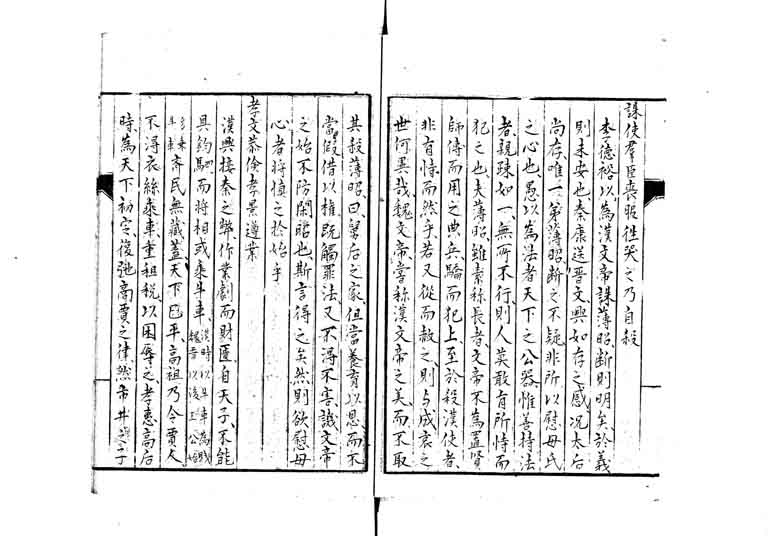 誅使羣臣喪服往哭之乃自殺
李德裕以為漢文帝誅薄昭斷則明矣於義
則未安也秦康送晉文興如存之感况太后
尚存唯一弟薄昭斷之不疑非所以慰母氏
之心也愚以為法者天下之公器惟善持法
者親疎如一無所不行則人莫敢有所恃而
犯之也夫薄昭雖素稱長者文帝不為置賢
師傅而用之典兵驕而犯上至於殺漢使者
非有恃而然乎若又從而赦之則与成哀之
世何異哉魏文帝嘗稱漢文帝之美而不取
其殺薄昭曰舅后之家但當養育以恩而不
當假借以權既觸罪法又不得不害譏文帝
之始不防閑昭也斯言得之矣然則欲慰母
心者將慎之於始乎
孝文恭儉孝景遵業
漢興接秦之弊作業劇而財匱自天子不能
具鈞駟而將相或乘牛車漢時以牛車為賤魏晉以後王公始
多乘牛車齊民無藏蓋天下已平高祖乃令賈人
不得衣絲乘車重租稅以困辱之孝惠高后
時為天下初定復弛商賈之律然市井之子